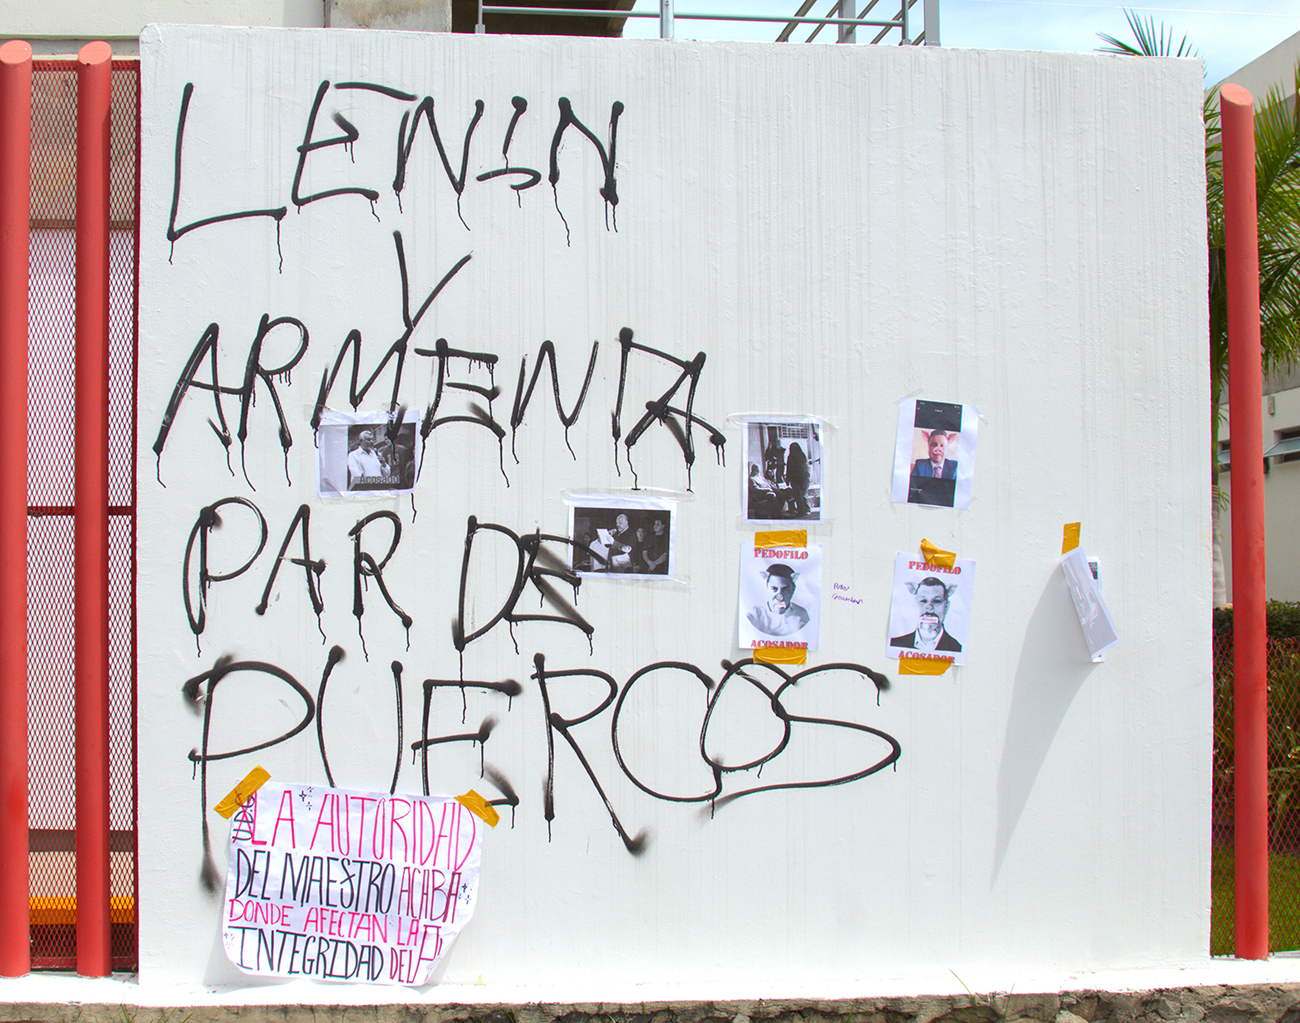 LENIN
Y
ARMENTA
PAR DE
PUERCOS
Acosado
PEDOFILO
ACOSADOR
PEDOFILO
ACOSADOR
LA AUTORIDAD
DEL MAESTRO ACABA
DONDE AFECTAN LA
INTEGRIDAD DEL